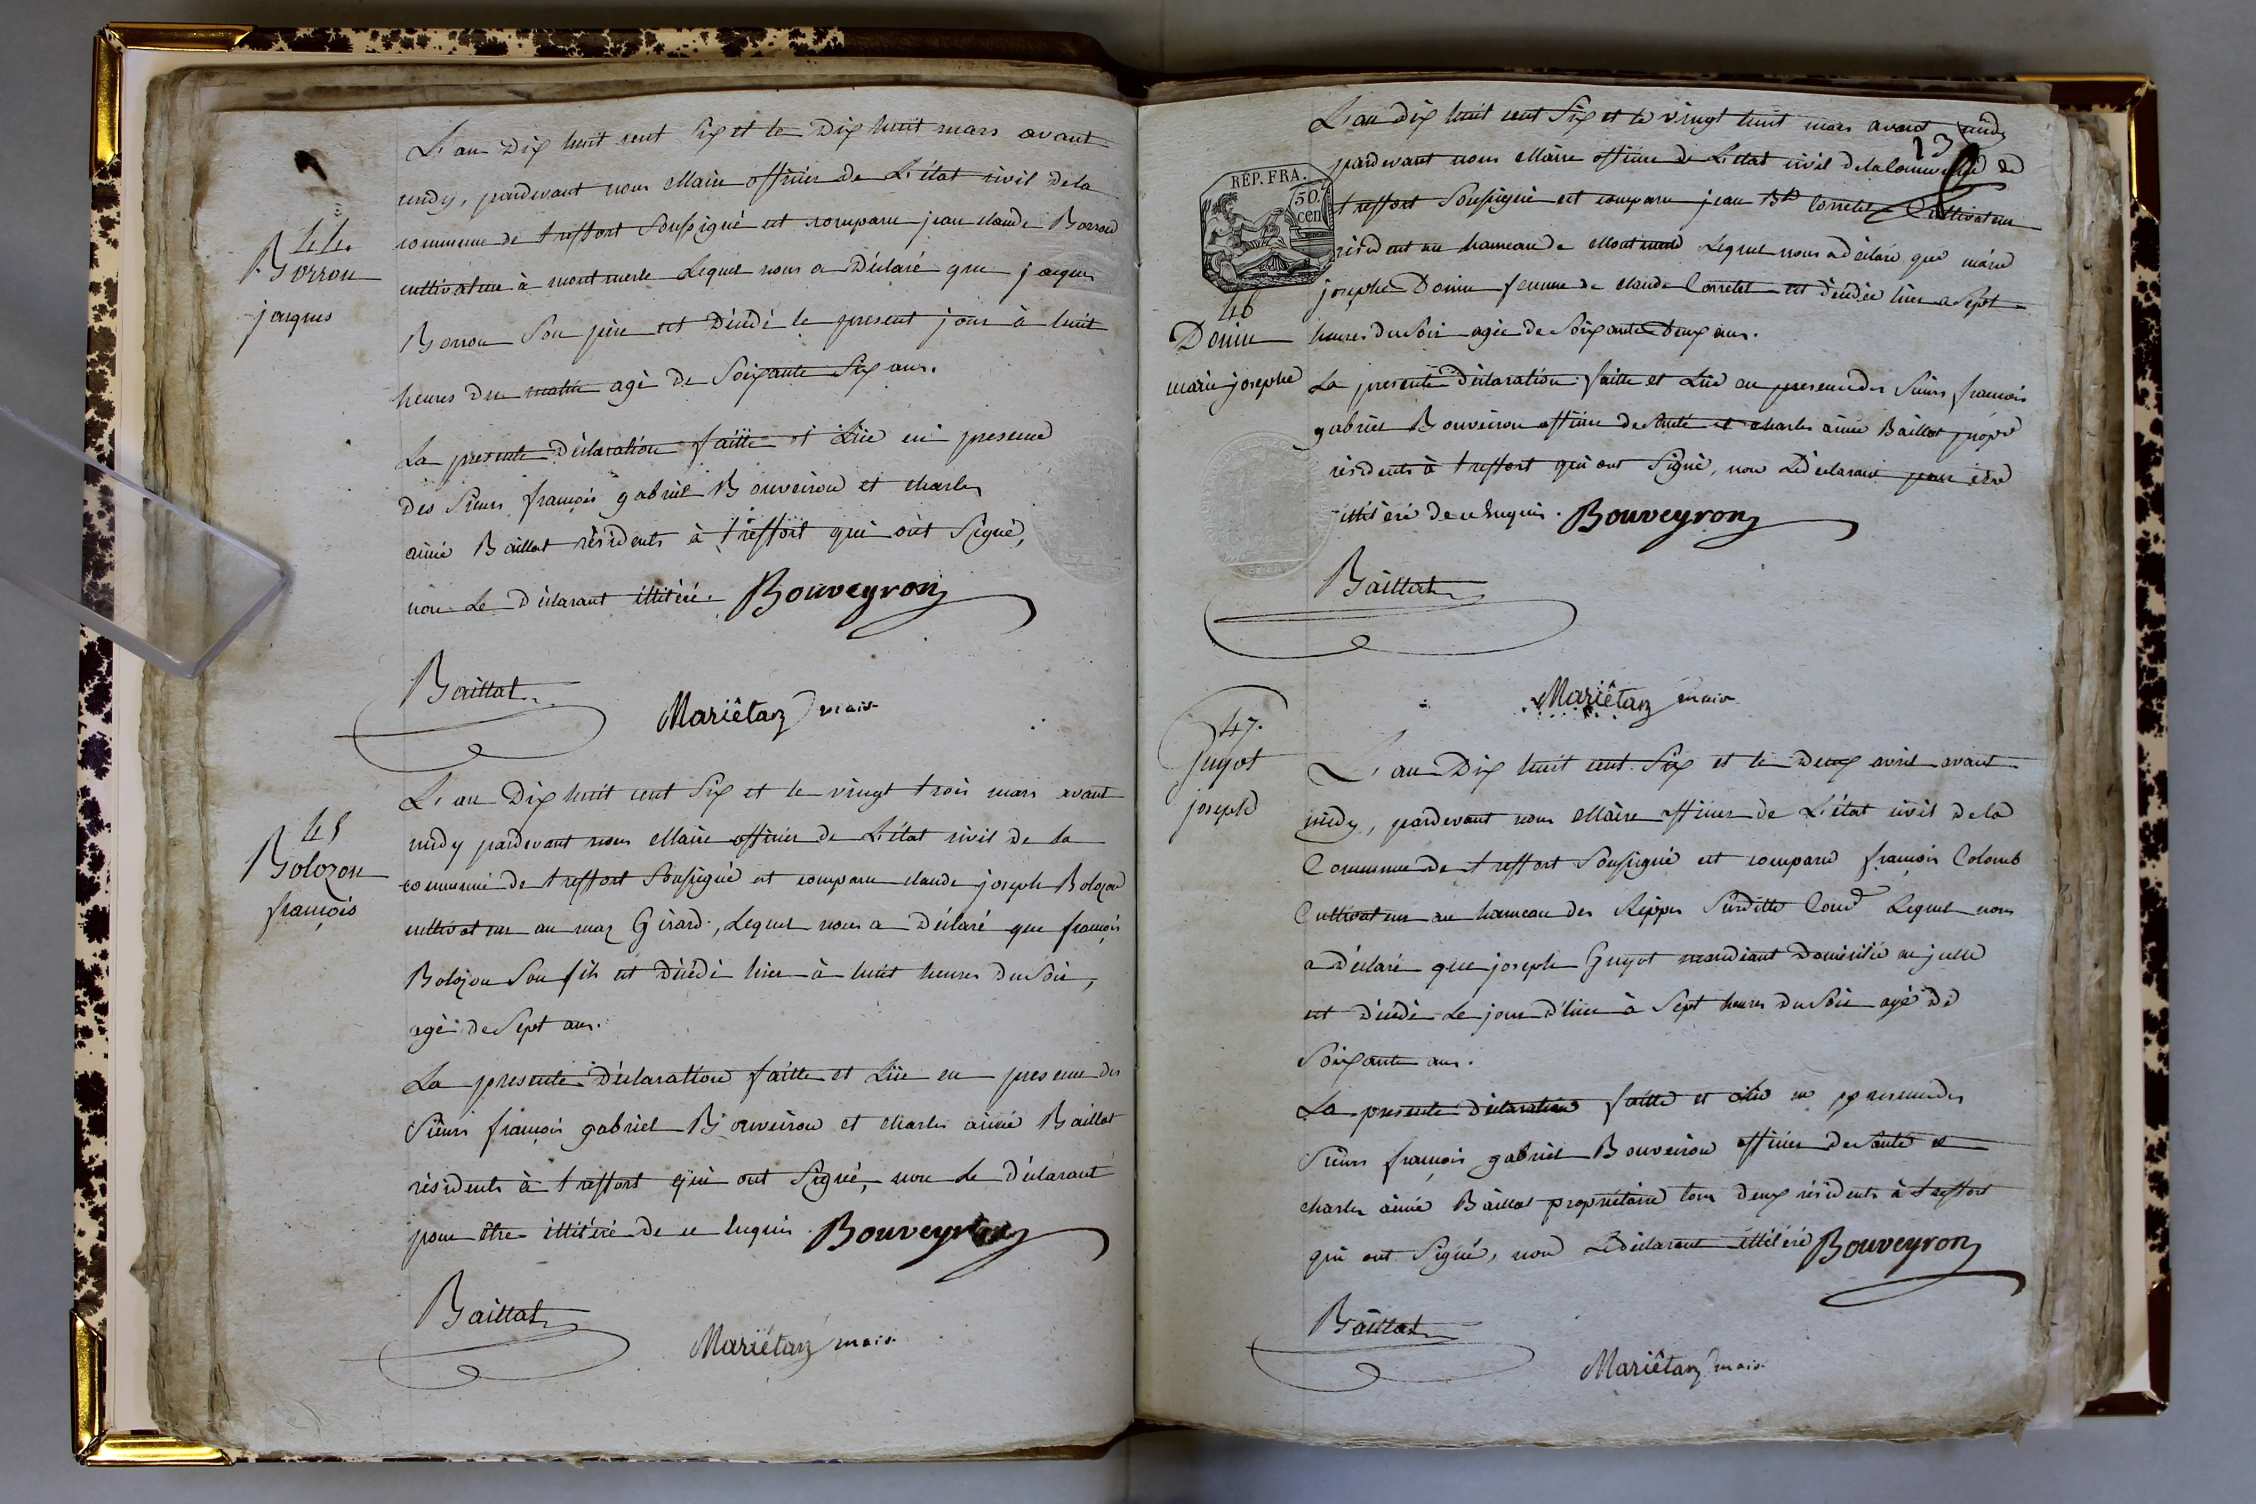 44.
Borron
jacques
L'an Dix huit cent Six et le Dix huit mars avant
midy, pardevant nous Maire officier de L'état civil de la
commune de treffort Soussigné est comparu jean claude Borron
cultivateur à montmerle Lequel nous a Déclaré que jacques
Borron Son père est Décédé le present jour à huit
heures du matin agé de Soixante Six ans.
La presente Déclaration faitte et Lüe en presence
des Sieurs françois gabriel Bouveiron et charles
aimé Baillat résidents à treffort qui ont Signé,
non Le Déclarant illitéré. Bouveyron
Baillat
Mariétan maire
45
Bolozon
françois
L'an Dix huit cent Six et le vingt trois mars avant
midy pardevant nous Maire officier de L'état civil de la
commune de treffort Soussigné est comparu claude joseph Bolozon
cultivateur au maz Girard, Lequel nous a Déclaré que françois
Bolozon Son fils est Décédé hier à huit heures du Soir,
agé de Sept ans.
La presente Déclaration faitte et Lüe en presence des
Sieurs françois gabriel Bouveiron et charles aimé Baillat
résidents à treffort qui ont Signé, non Le Déclarant
pour être illitéré de ce Enquis. Bouveyron
Baillat
Mariétan maire
13
REP. FRA.
50.
cen
46
Donin
marie josephe
L'an Dix huit cent Six et le vingt huit mars avant midy
pardevant nous Maire officier de L'état civil de la Commune de
treffort Soussigné est comparu jean Bte Corretel Cultivateur
résident au hameau de Lequel nous a déclaré que marie
josephe Donin femme de claude Corretel est décédée hier a Sept
heures du Soir agée de Soixante Deux ans.
La presente Déclaration faitte et Lüe en presence des Sieurs françois
gabriel Bouveiron officier de Santé et charles aimé Baillat propre
résidents à treffort qui ont Signé, non Le Déclarant pour être
illitéré de ce Enquis. Bouveyron
Baillat
Mariétan maire
47.
Guyot
joseph
L'an Dix huit cent Six et le Deux avril avant
midy, pardevant nous Maire officier de L'état civil de la
Commune de treffort Soussigné est comparu françois Colomb
Cultivateur au hameau des Rippes Surditte Comne Lequel nous
a déclaré que joseph Guyot mandiant Domicilié au
est décédé Le jour d'hier à Sept heures du Soir agé de
Soixante ans.
La presente Déclaration faitte et Lüe en presence des
Sieurs françois gabriel Bouveiron officier de Santé et
charles aimé Baillat propriétaire tous deux résidents à treffort
qui ont Signé, non Le Déclarant illitéré Bouveyron
Baillat
Mariétan maire